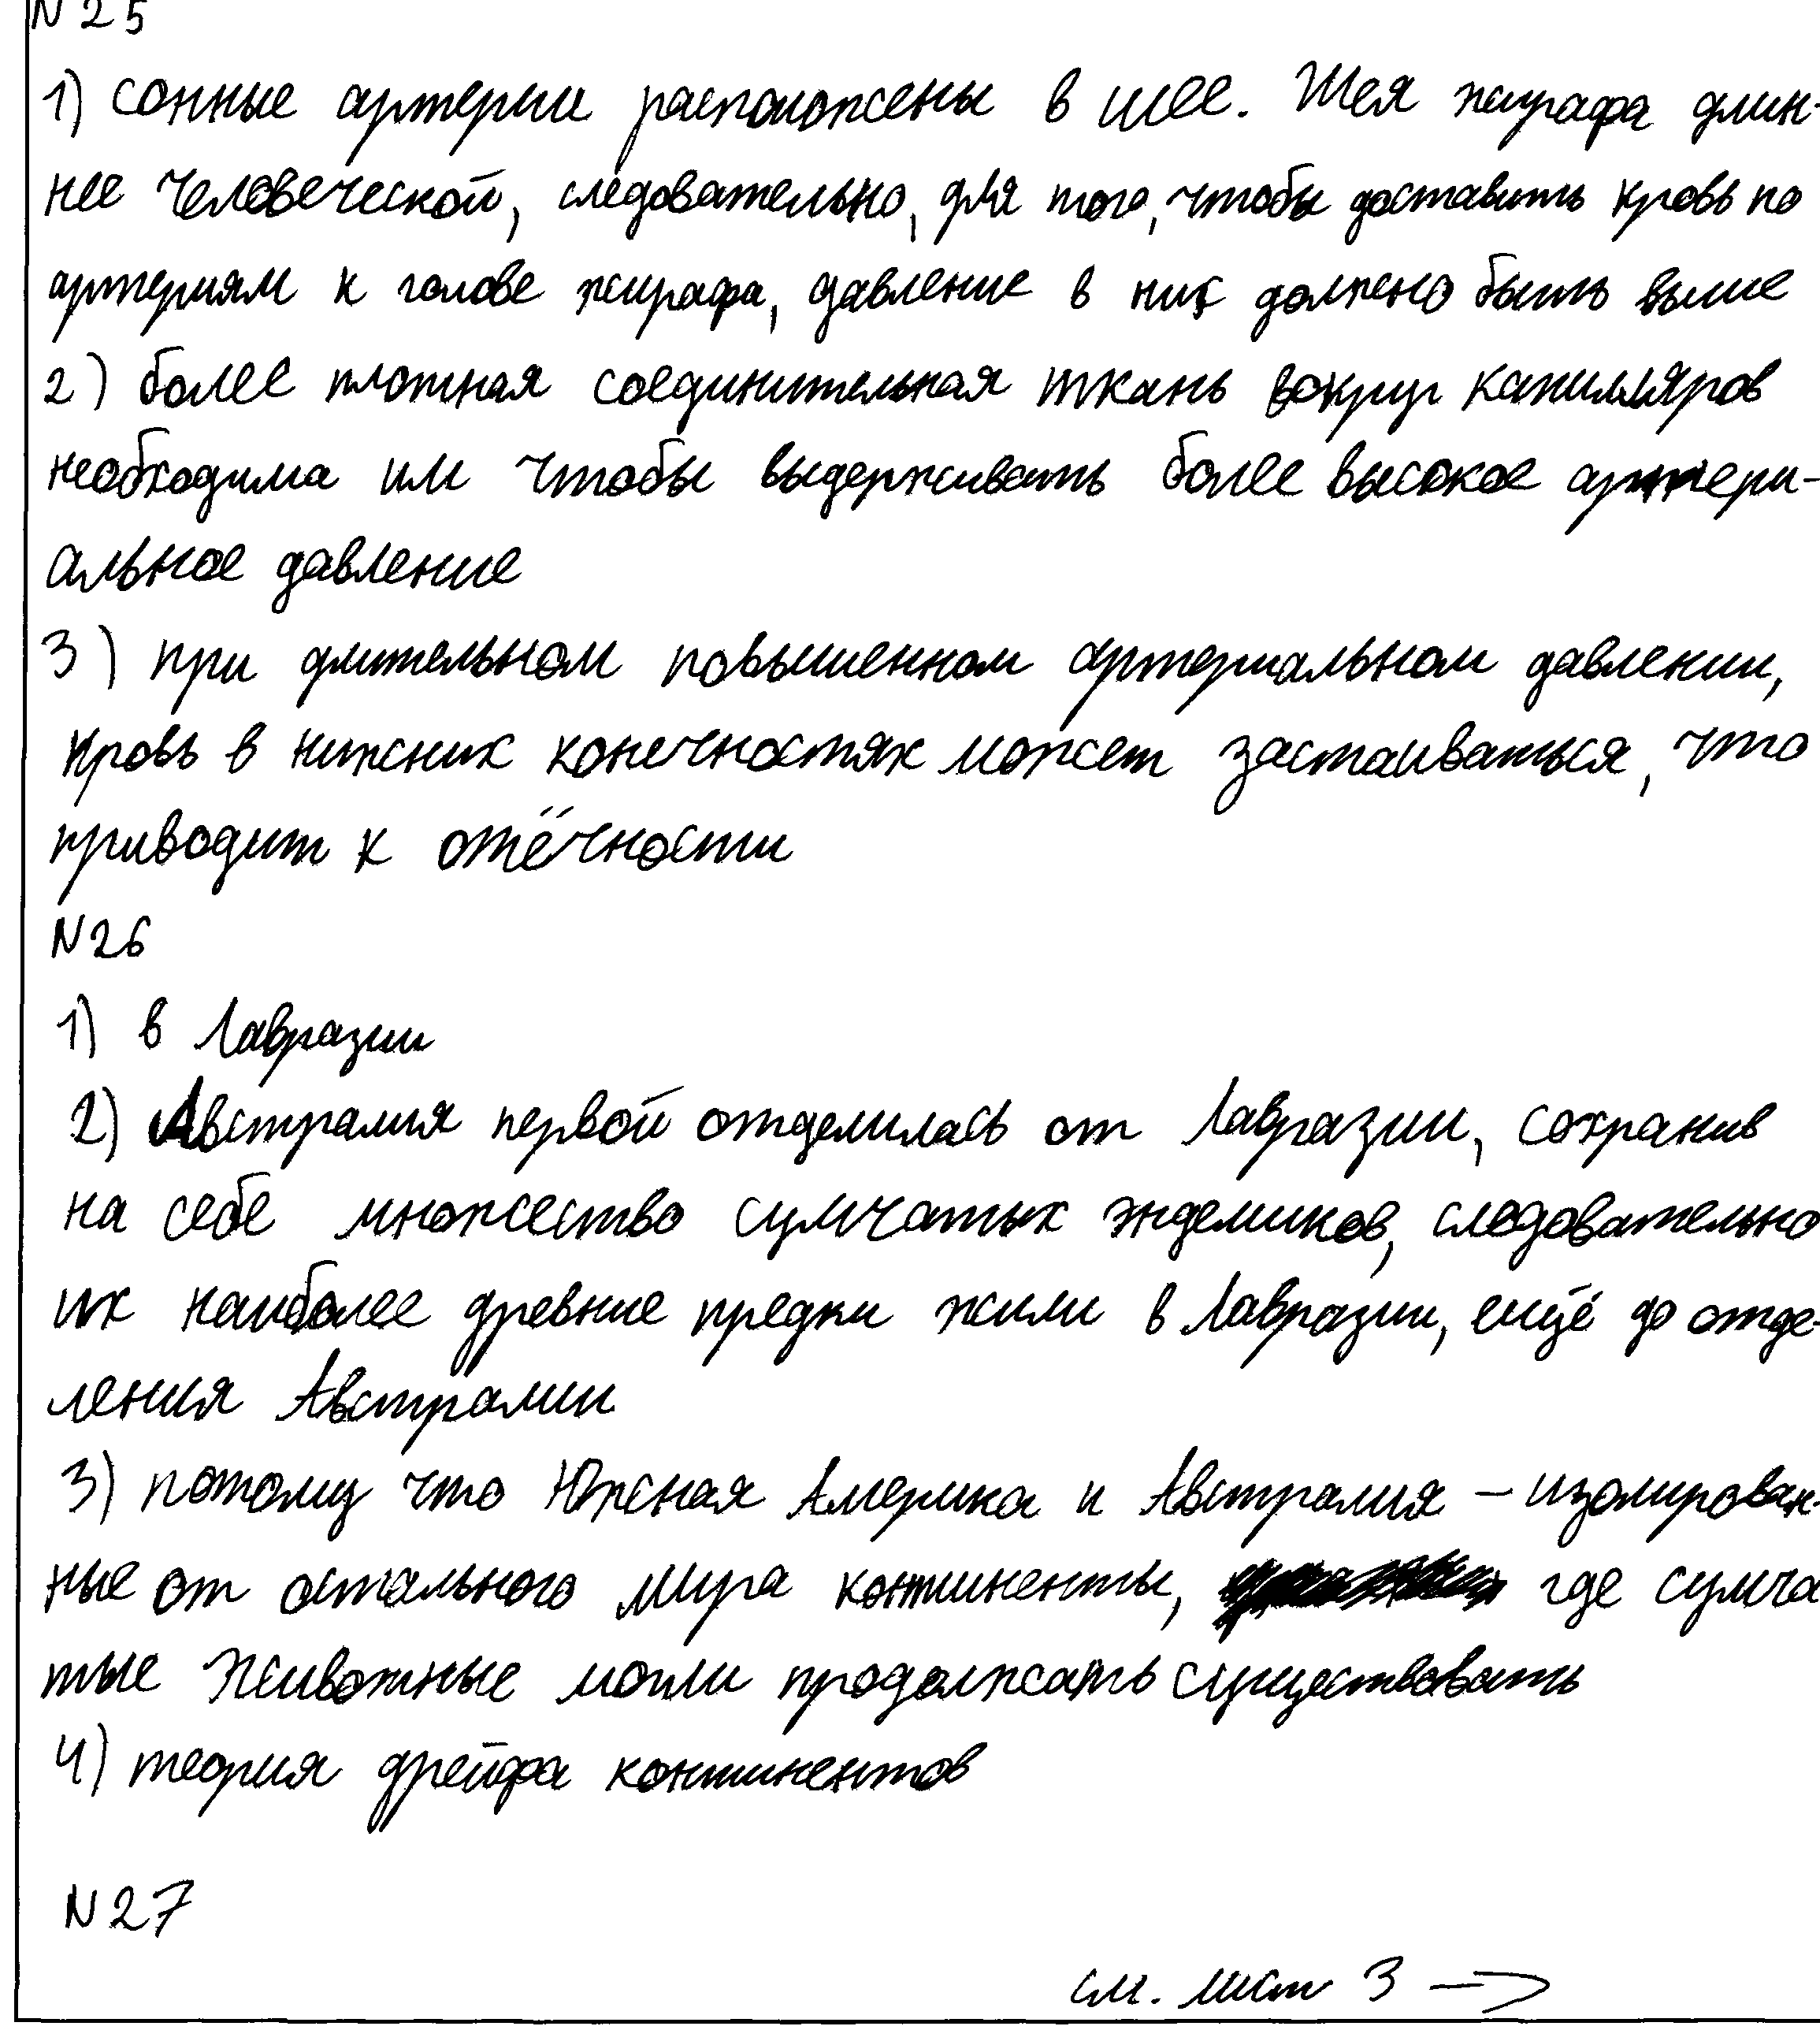 N 25
1) сонные артерии расположены в шее. Шея жирафа длин-
нее человеческой, следовательно, для того, чтобы доставить кровь по
артериям к голове жирафа, давление в них должно быть выше
2) более плотная соединительная ткань вокруг капилляров
необходима им чтобы выдерживать более высокое артери-
альное давление
3) при длительном повышенном артериальном давлении,
кровь в нижних конечностях может застаиваться, что
приводит к отёчности
N26
1) в Лавразии
2) Австралия первой отделилась от Лавразии, сохранив
на себе множество сумчатых эндемиков, следовательно
их наиболее древние предки жили в Лавразии, ещё до отде-
ления Австралии
3) потому что Южная Америка и Австралия – изолирован-
ные от остального мира континенты, где сумча
тые животные могли продолжать существовать
4) теория дрейфа континентов
N27
см. лист 3 →